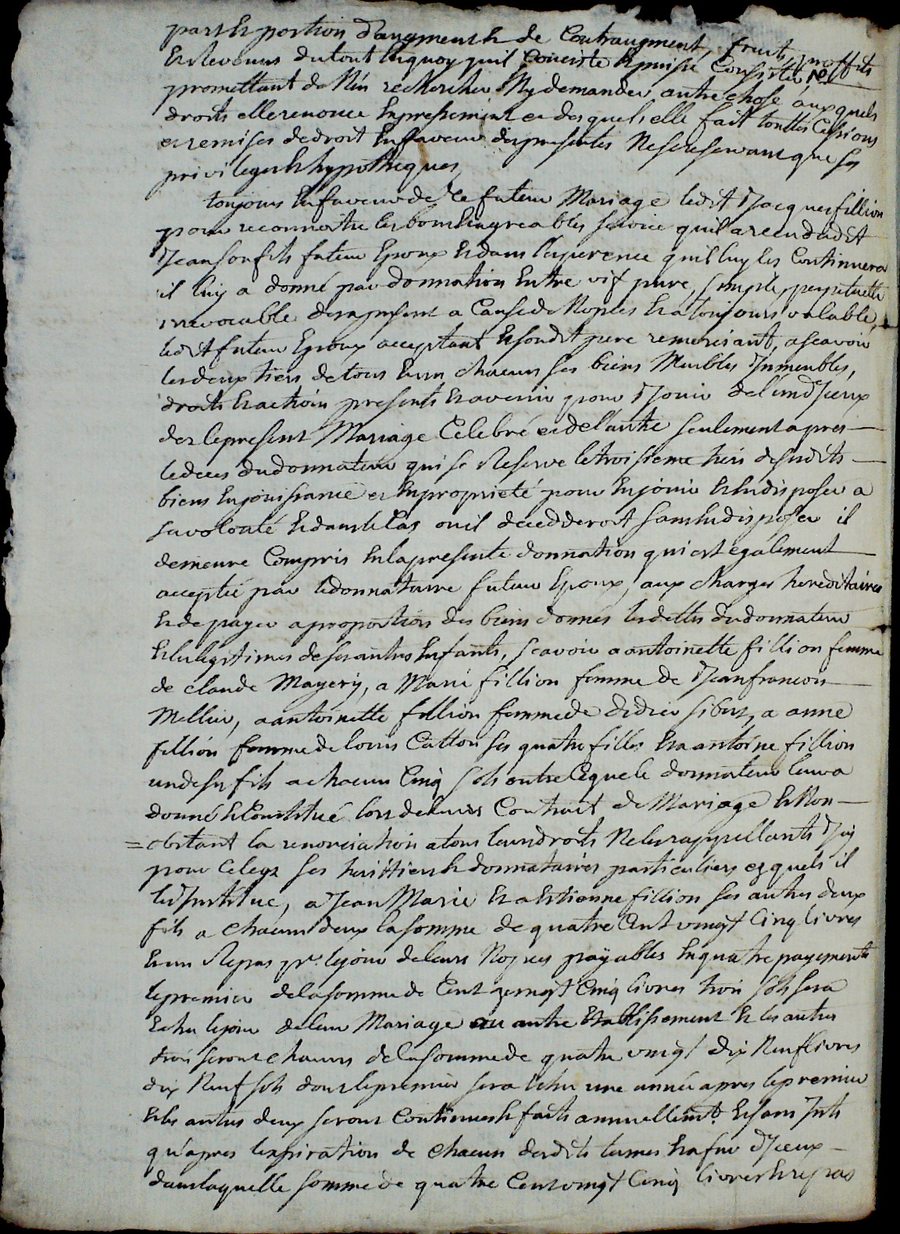 part et portion d'augment et de Contraugment, fruits, proffits
et revenus du tout en quoy qu'il Conciste et puisse Consister
promettant de N'en rechercher Ny demander autre chose auxquels
droits elle renonce Expressement et desquels elle fait touttes Cessions
et remises de droit en faveur des presentes Ne se reservant que ses
privileges et hypotheques
toujours en faveur de Ce futeur Mariage ledit Jacques fillion
pour reconnoitre les bons et agreables service qu'il a recu dudit
Jean son fils futeur Epoux et dans l'esperence qu'il luy les Continuera
il luy a donné par donnation entre vif pure, simple, perpetuelle
irrevocable des a present a Cause de Noples et a toujours valable,
ledit futeur Epoux acceptant et sondit pere remerciant, a scavoir
les deux tiers de tous et un chacuns ses biens Meubles Immeubles,
droits et actions presents et avenir pour Jouir de l'un d'Iceux
des le present Mariage Celebré et de l'autre seulement apres
le deces du donnateur qui se Reserve le troisieme tiers desdits
biens en jouissance et en proprieté pour en jouir et en disposer a
sa volonté et dans le Cas ou il decedderoit sans en disposer il
demeure Compris en la presente donnation qui est également
acceptée par le donnataire futeur Epoux, aux charges hereditaires
et de payer a proportion des biens donnés les dettes du donnateur
et les legitimes de ses autres Enfants, scavoir a antoinette fillion femme
de claude Mayery, a Marie fillion femme de Jean francois
Mellier, a antoinette fillion femme de didier sibert, a anne
fillion femme de louis Catton ses quatre filles et a antoine fillion
un de ses fils a chacun Cinq sols outre Ceque le donnateur leur a
donné et Constitué lors de leurs Contrait de Mariage et Non
=obstant la renonciation a tous leurs droits Ne les rappellants Icy
pour Celeqs ses heritiers et donnataires particuliers ezquels il
les Institue, a Jean Marie et a Etienne fillion ses autres deux
fils a chacun d'eux la somme de quatre Cent vingt Cinq livres
et un Repas pr. le jour de leurs Nopces payables en quatre payements
le premier de la somme de Cent vingt Cinq livres trois sols sera
Echu le jour de leur Mariage ou autre Etablissement et les autres
trois seront chacuns de la somme de quatre vingt dix Neuf livres
dix Neuf sols dont le premier sera Echu une année apres le premier
et les autres deux seront Continués et faits annuellemt. et sans Ints
qu'apres l'expiration de chacun desdits termes en fin d'Iceux
dans laquelle somme de quatre Cent vingt Cinq livres et repas